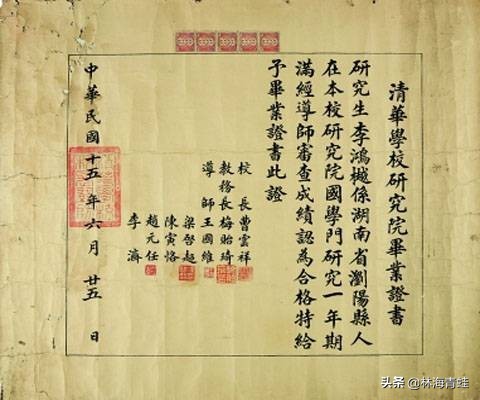 清華學校研究院畢業證書
研究生李鴻樾係湖南省瀏陽縣人
在本校研究院國學門研究一年期
滿經導師審查成績認為合格特給
予畢業證書此證
校長曹雲祥
教務長梅貽琦
導師王國維
梁啓超
陳寅恪
趙元任
李濟
中華民國十五年六月廿五日
头条 @林海青蛙